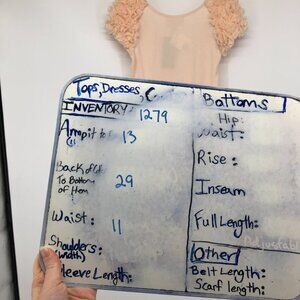 Tops, Dresses, C
INVENTORY: 1279
Armpit to
13
Back of
To Bottom
of Hem
29
Waist: 11
Shoulders:
(width)
Sleeve Length:
Bottoms
Hip:
Waist:
Rise:
Inseam
Full Length:
Adjustab
Other
Belt Length:
Scarf length: